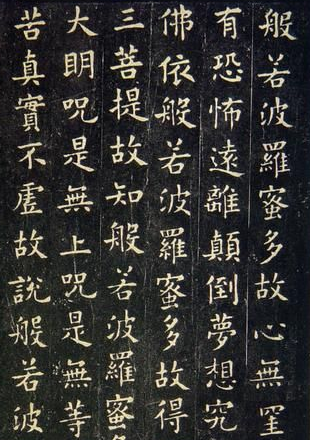 般若波羅蜜多故心無罣
有恐怖遠離顛倒夢想究
佛依般若波羅蜜多故得
三菩提故知般若波羅蜜多
大明咒是無上咒是無等
苦真實不虛故說般若波